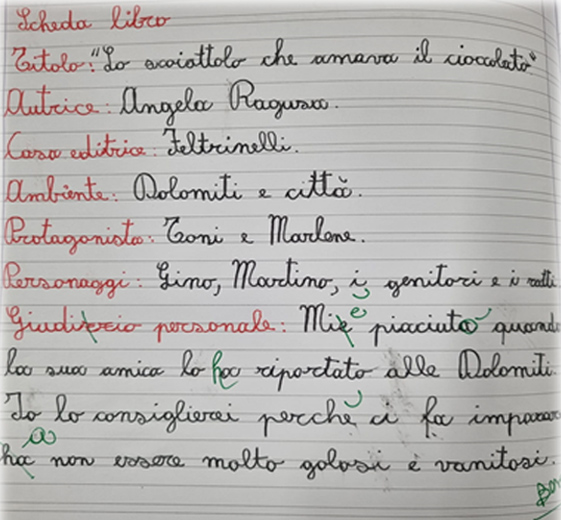 Scheda libro
Titolo: "Lo scoiattolo che amava il cioccolato"
Autrice: Angela Ragusa.
Casa editrice: Feltrinelli.
Ambiente: Dolomiti e città.
Protagonista: Toni e Marlene.
Personaggi: Gino, Martino, i genitori e i ratti
Giudizio personale: Mi è piaciuto quando
la sua amica lo ha riportato alle Dolomiti.
Io lo consiglierei perché ci fa imparare
a non essere molto golosi e vanitosi.